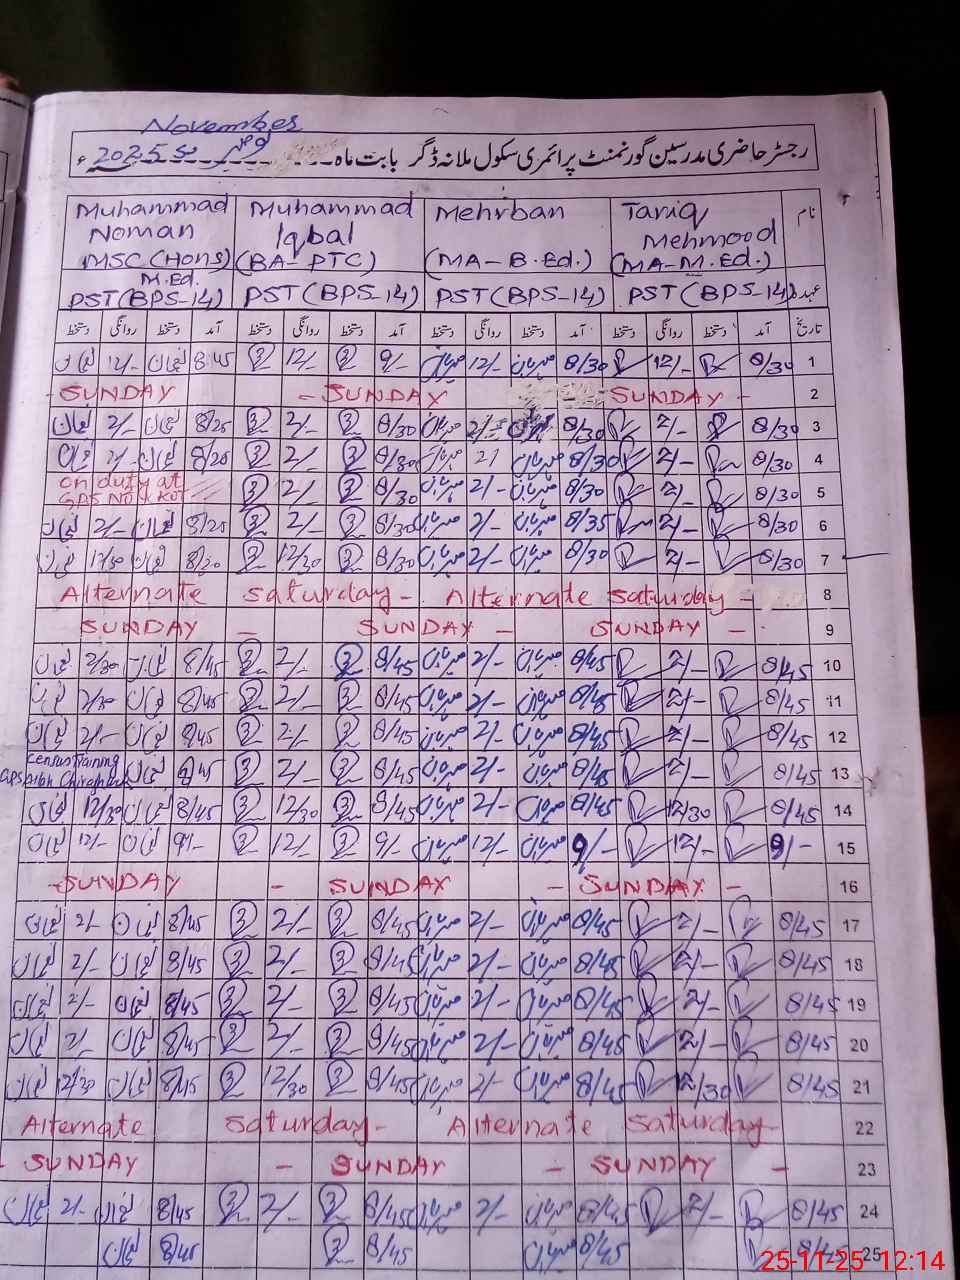 November
رجسٹر حاضری مدرسین گورنمنٹ پرائمری سکول ملانہ ڈگر بابت ماہ نومبر 2025ء
Muhammad Noman MSC (Hons) M.Ed. Muhammad Iqbal (BA-PTC) Mehrban (MA-B.Ed.) Tariq Mehmood (MA-M.Ed.) نام
PST (BPS-14) PST (BPS-14) PST (BPS-14) PST (BPS-14) عہدہ
دستخط روانگی دستخط آمد دستخط روانگی دستخط آمد دستخط روانگی دستخط آمد دستخط روانگی دستخط آمد تاریخ
12/- 8/45 12/- 9/- مہربان 12/- مہربان 8/30 12/- 8/30 1
SUNDAY - SUNDAY SUNDAY - 2
2/- 8/25 2/- 8/30 مہربان 2/- مہربان 8/30 2/- 8/30 3
2/- 8/25 2/- 8/30 مہربان 2/ مہربان 8/30 2/- 8/30 4
on duty at GPS KOT 2/- 8/30 مہربان 2/- مہربان 8/30 2/- 8/30 5
2/- 8/25 2/- 8/30 مہربان 2/- مہربان 8/35 2/- 8/30 6
12/30 8/20 12/30 8/30 مہربان 2/- مہربان 8/30 2/- 8/30 7
Alternate Saturday - Alternate Saturday - 8
SUNDAY - SUNDAY - SUNDAY - 9
2/30 8/45 2/- 8/45 مہربان 2/- مہربان 8/45 2/- 8/45 10
2/30 8/45 2/- 8/45 مہربان 2/- مہربان 8/45 2/- 8/45 11
2/- 8/45 2/- 8/45 مہربان 2/- مہربان 8/45 2/- 8/45 12
census Training 45 2/- 8/45 مہربان 2/- مہربان 8/45 2/- 8/45 13
12/30 8/45 12/30 8/45 مہربان 2/- مہربان 8/45 12/30 8/45 14
12/- 9/- 12/- 9/- مہربان 12/- مہربان 9/- 12/- 9/- 15
-SUNDAY - SUNDAY - SUNDAY - 16
2/- 8/45 2/- 8/45 مہربان 2/- مہربان 8/45 2/- 8/45 17
2/- 8/45 2/- 8/45 مہربان 2/- مہربان 8/45 2/- 8/45 18
2/- 8/45 2/- 8/45 مہربان 2/- مہربان 8/45 2/- 8/45 19
2/- 8/45 2/- 8/45 مہربان 2/- مہربان 8/45 2/- 8/45 20
12/30 8/45 12/30 8/45 مہربان 2/- مہربان 8/45 12/30 8/45 21
Alternate Saturday - Alternate Saturday - 22
- SUNDAY - SUNDAY - SUNDAY - 23
2/- 8/45 2/- 8/45 مہربان 2/- مہربان 8/45 2/- 8/45 24
8/45 8/45 مہربان 8/45 25
25-11-25 12:14